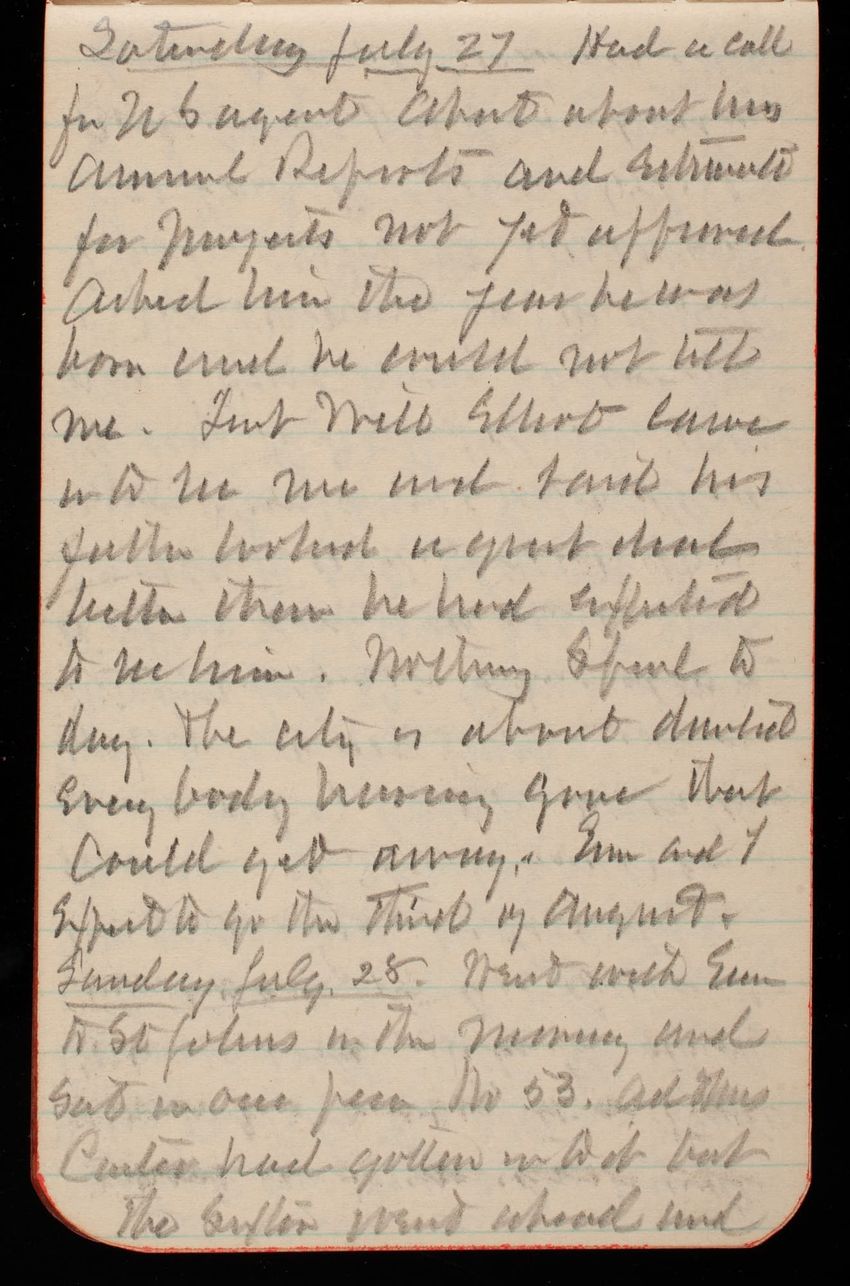 Saturday July 27 Had a call
fr N B agent Abert about his
Annual Reports and Estimate
for Projects not yet approved
Asked him the year he was
born and he could not tell
me. Lieut Will Elliot came
in to see me and said his
father looked a great deal
better than he had expected
to see him. Nothing Special to
day. The city is about deserted
Every body having gone that
Could get away. Em and I
Expect to go the third of August.
Sunday July 28. Went with Em
to St Johns in the morning and
Sat in our pew No 53.
Carter had gotten in to it but
the Sexton went ahead and